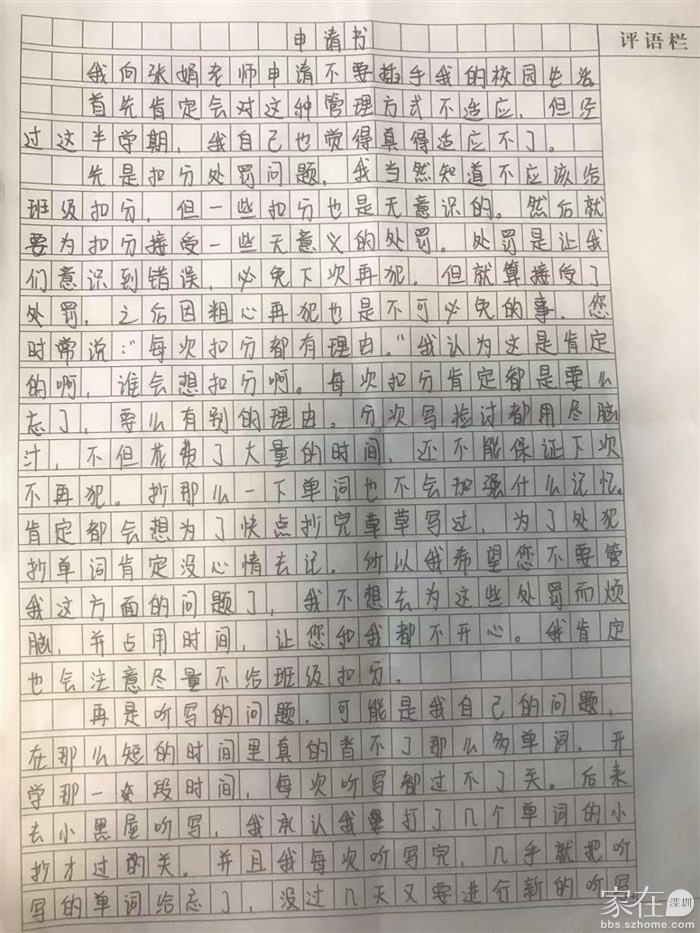 申请书
评语栏
我向张娟老师申请不要插手我的校园生活
首先肯定会对这种管理方式不适应，但经
过这半学期，我自己也觉得真得适应不了。
先是扣分处罚问题，我当然知道不应该给
班级扣分，但一些扣分也是无意识的。然后就
要为扣分接受一些无意义的处罚。处罚是让我
们意识到错误，必免下次再犯。但就算接受了
处罚，之后因粗心再犯也是不可必免的事。您
时常说：“每次扣分都有理由。”我认为这是肯定
的啊，谁会想扣分啊。每次扣分肯定都是要么
忘了，要么有别的理由。分次写检讨都用尽脑
汁，不但花费了大量的时间，还不能保证下次
不再犯。抄那么一下单词也不会加强什么记忆。
肯定都会想为了快点抄完草草写过，为了处犯
抄单词肯定没心情去记。所以我希望您不要管
我这方面的问题了，我不想去为这些处罚而烦
脑，并占用时间，让您和我都不开心。我肯定
也会注意尽量不给班级扣分。
再是听写的问题。可能是我自己的问题，
在那么短的时间里真的背不了那么多单词。开
学那一段时间，每次听写都过不了关。后来
去小黑屋听写，我承认我打了几个单词的小
抄才过的关。并且我每次听写完，几乎就把听
写的单词给忘了，没过几天又要进行新的听写
家在深圳
bbs.szhome.com